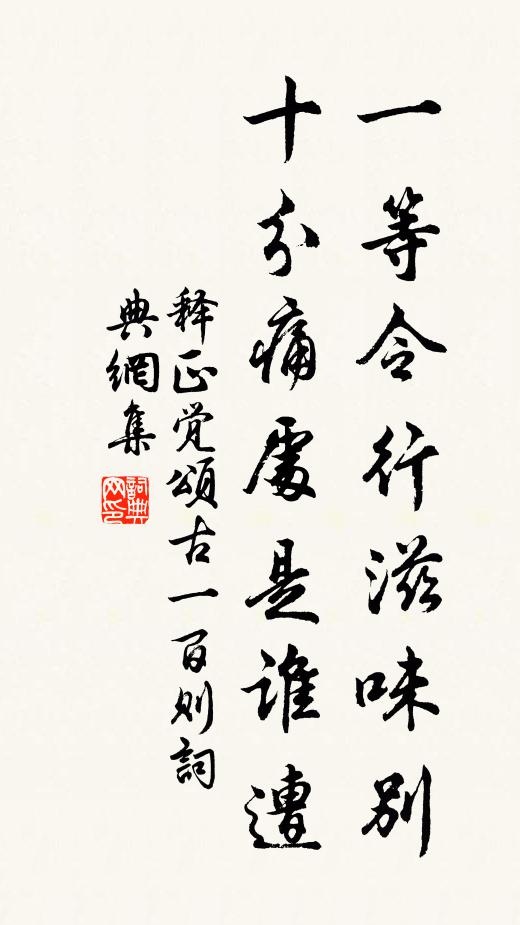 一等令行滋味别
十分痛處是誰遭
释正觉頌古一百则詞
典網集
詞典网印